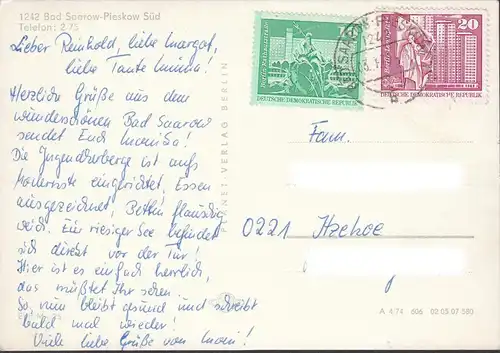 1242 Bad Saarow-Pieskow Süd
Telefon: 2 75
Lieber Reinhold, liebe Margot,
liebe Tante Minna!
Herzliche Grüße aus dem
wunderschönen Bad Saarow
sendet Euch
Die Jugendherberge ist aufs
Modernste eingerichtet, Essen
ausgezeichnet, Betten flauschig
weich. Ein riesiger See befindet
sich direkt vor der Tür!
Hier ist es einfach herrlich,
das müßtet Ihr sehen.
So, nun bleibt gesund und schreibt
bald mal wieder!
Viele liebe Grüße von
PLANET-VERLAG BERLIN
DEUTSCHE DEMOKRATISCHE REPUBLIK
20
DEUTSCHE DEMOKRATISCHE REPUBLIK
Fam.
0221 Itzehoe
A 4/74 606 02 05 07 580